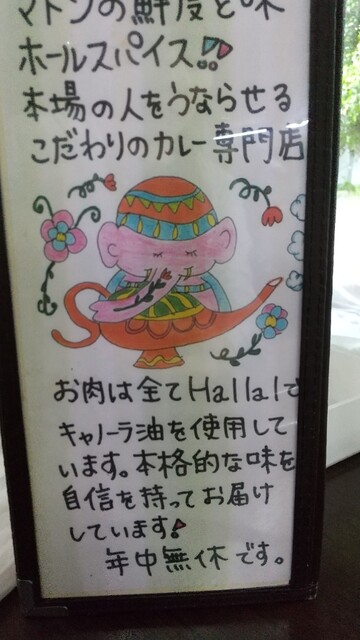 マトンの鮮度と味
ホールスパイス!!
本場の人をうならせる
こだわりのカレー専門店
お肉は全てHallalで
キャノーラ油を使用して
います。本格的な味を
自信を持ってお届け
しています!
年中無休です。